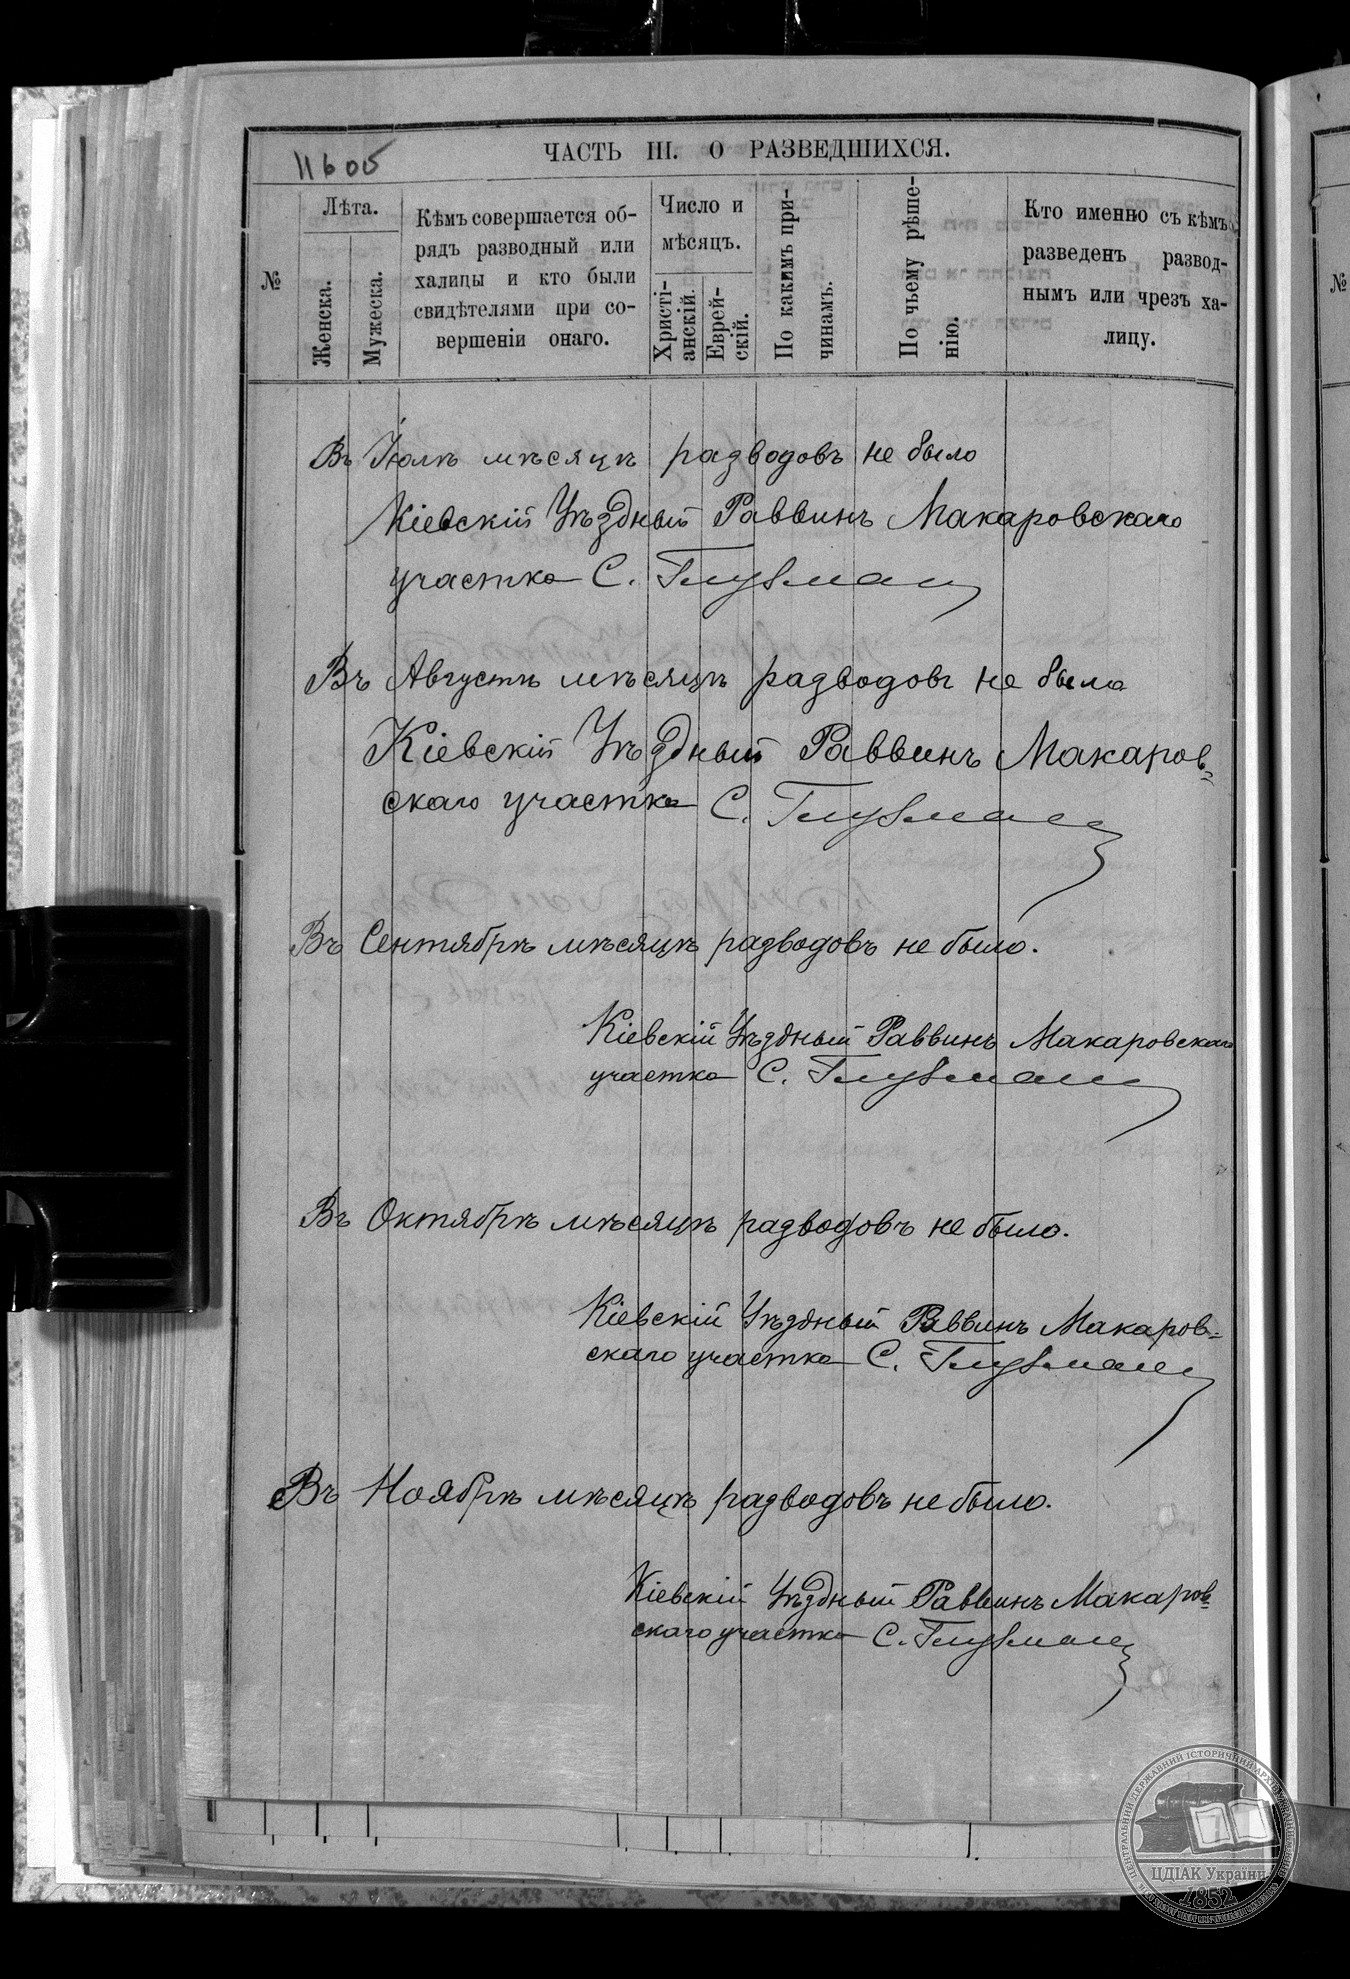 11605
ЧАСТЬ III. О РАЗВЕДШИХСЯ.
№
Лѣта.
Женска.
Мужеска.
Кѣмъ совершается об-
рядъ разводный или
халицы и кто были
свидѣтелями при со-
вершеніи онаго.
Число и
мѣсяцъ.
Христі-
анскій.
Еврей-
скій.
По какимъ при-
чинамъ.
По чьему рѣше-
нію.
Кто именно съ кѣмъ
разведенъ развод-
нымъ или чрезъ ха-
лицу.
№
Въ Іюлѣ мѣсяцѣ разводовъ не было
Кіевскій Уѣздный Раввинъ Макаровскаго
участка С. Глузман
Въ Августѣ мѣсяцѣ разводовъ не было
Кіевскій Уѣздный Раввинъ Макаров-
скаго участка С. Глузман
Въ Сентябрѣ мѣсяцѣ разводовъ не было.
Кіевскій Уѣздный Раввинъ Макаровскаго
участка С. Глузман
Въ Октябрѣ мѣсяцѣ разводовъ не было.
Кіевскій Уѣздный Раввинъ Макаров-
скаго участка С. Глузман
Въ Ноябрѣ мѣсяцѣ разводовъ не было.
Кіевскій Уѣздный Раввинъ Макаров-
скаго участка С. Глузман
ЦДІАК України
1852